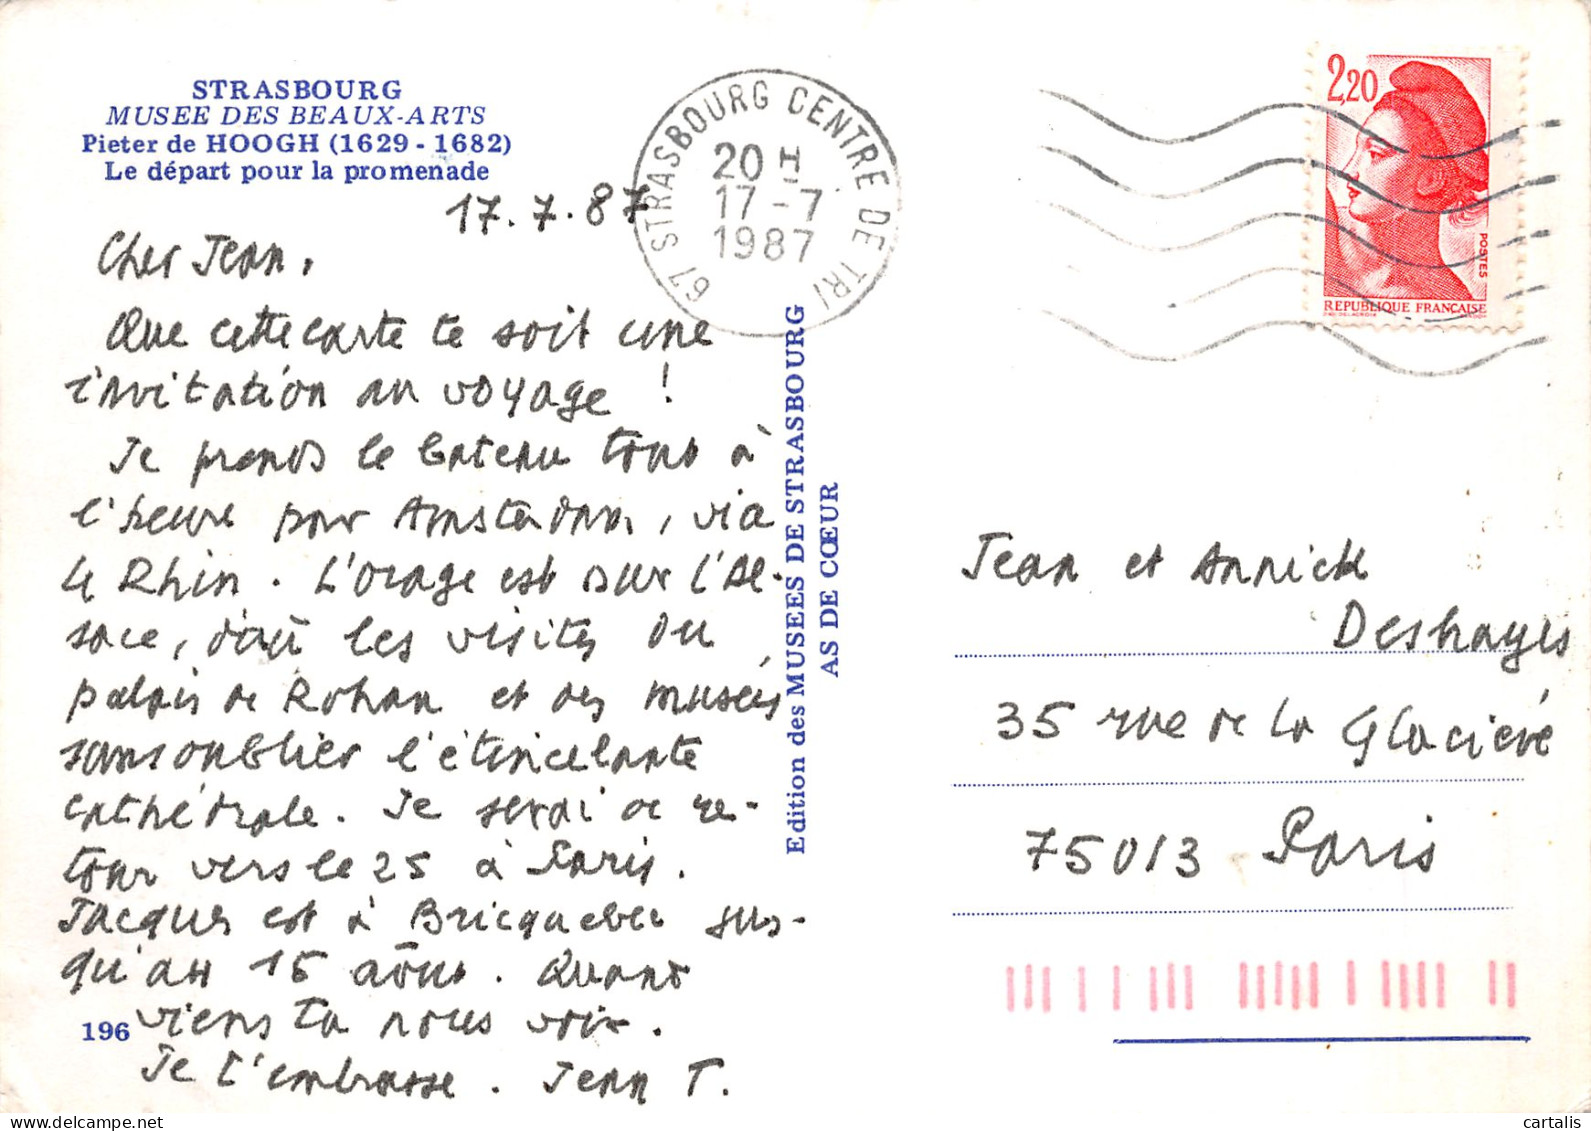 STRASBOURG
MUSEE DES BEAUX-ARTS
Pieter de HOOGH (1629 - 1682)
Le départ pour la promenade
17.7.87
Cher Jean,
Que cette carte te soit une
invitation au voyage !
Je prends le bateau tout à
l'heure pour Amsterdam, via
le Rhin. L'orage est sur l'Al-
sace, d'où les visites du
palais de Rohan et des musées
sans oublier l'étincelante
cathédrale. Je serai de re-
tour vers le 25 à Paris.
Jacques est à Bricquebec jus-
qu'au 15 août. Quand
viens tu nous voir.
Je t'embrasse. Jean T.
196
Edition des MUSEES DE STRASBOURG
AS DE CŒUR
67 STRASBOURG CENTRE DE TRI
20 H
17 - 7
1987
2,20
POSTES
REPUBLIQUE FRANÇAISE
Jean et Annick
Deshayes
35 rue de la Glaciere
75013 Paris
cartalis